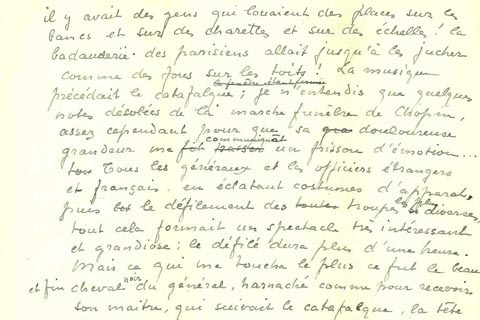 il y avait des gens qui louaient des places sur les
bancs et sur des charettes et sur des échelles ! la
badauderie des parisiens allait jusqu'à les jucher
comme des fous sur les toits ! La musique
précédait le catafalque ; je n'entendis que quelques
notes désolées de la marche funèbre de Chopin,
assez cependant pour que sa douloureuse
communiquat
grandeur me fit un frisson d'émotion...
Tous les généraux et les officiers étrangers
et français en éclatant costumes d'apparat,
puis le défilement des toutes troupes les plus diverses,
tout cela formait un spectacle très intéressant
et grandiose ; le défilé dura plus d'une heure.
Mais ce qui me toucha le plus ce fut le beau
et fin cheval noir du général, harnaché comme pour recevoir
son maître, qui suivait le catafalque, la tête